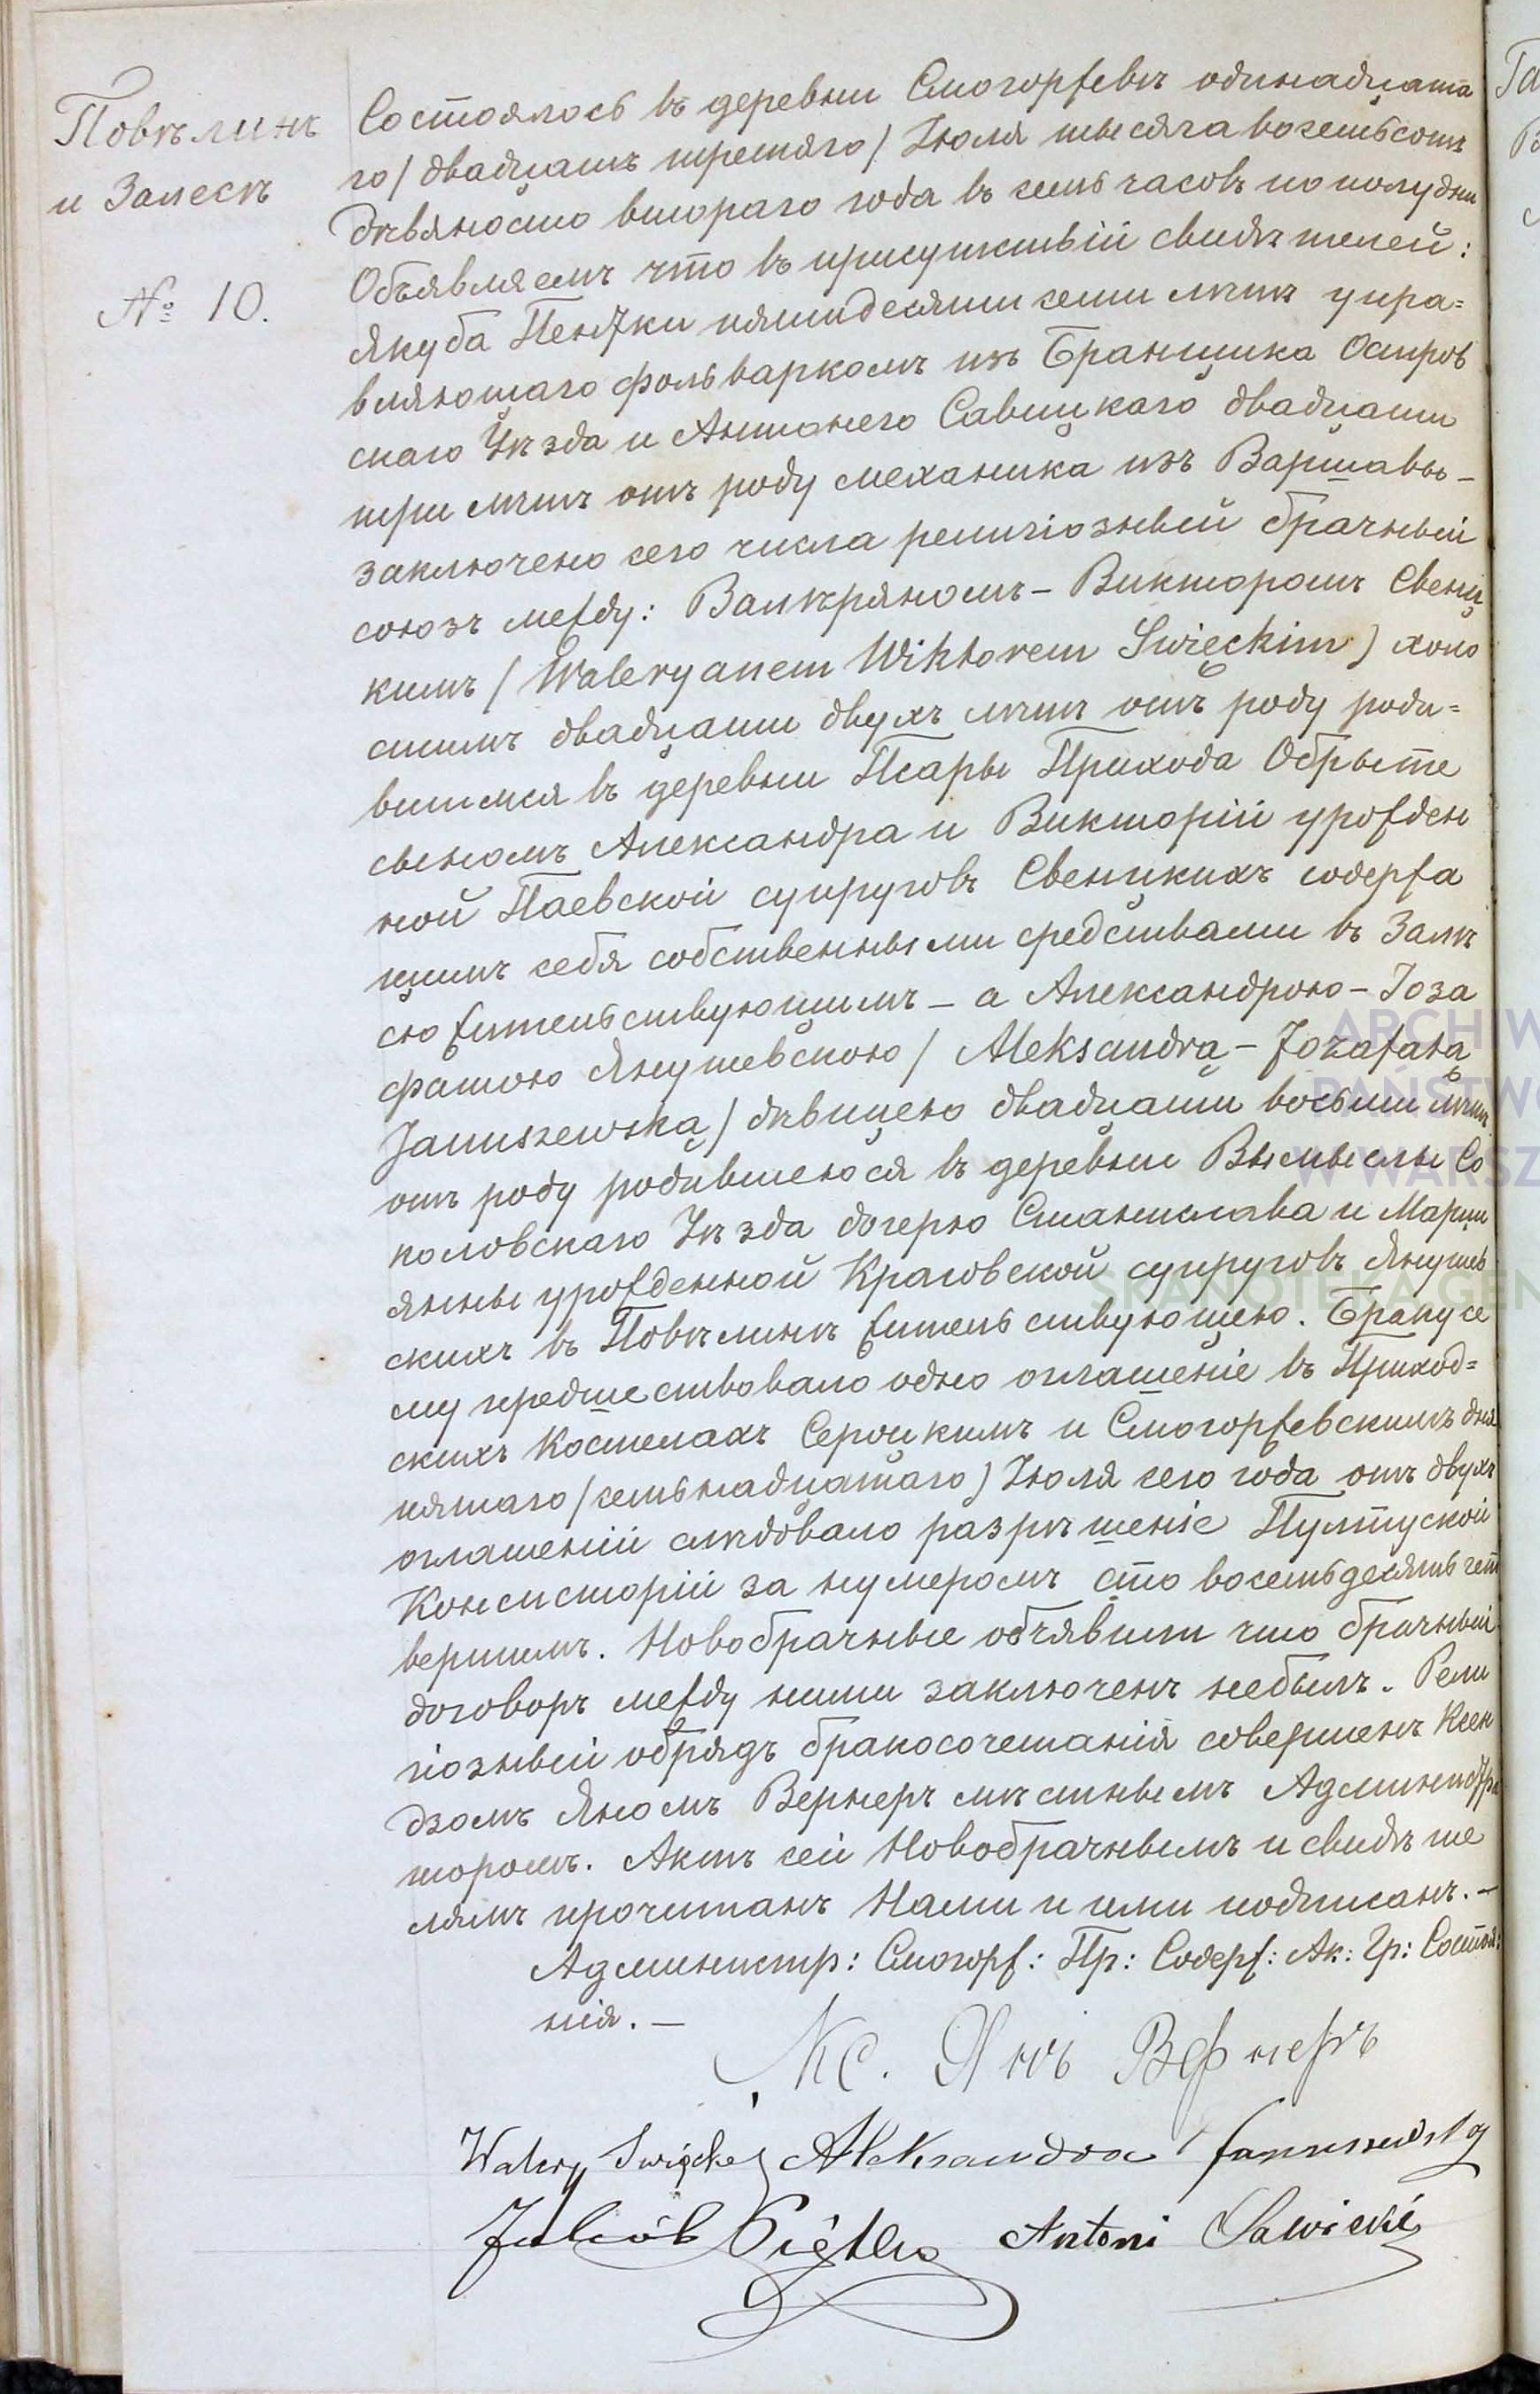 Повѣлинъ
и Залесѣ
№ 10.
Состоялось въ деревни Смогоржевѣ одинадцата
го/двадцать третяго/Іюля тысяча восемьсотъ
дѣвяносто втораго года въ семь часовъ по полудни
Объявляемъ что въ присутствіи свидѣтелей:
Якуба Пентки пятидесяти семи лѣтъ упра=
вляющаго фольваркомъ изъ Бранщика Остров
скаго Уѣзда и Антонего Савицкаго двадцати
три лѣтъ отъ роду механика изъ Варшавы –
заключено сего числа религіозный брачный
союзъ между: Валѣряномъ – Викторомъ Свенц
кимъ (Waleryanem Wiktorem Święckim) холо
стымъ двадцати двухъ лѣтъ отъ роду роди=
вшимся въ деревни Псары Прихода Обрыте
сыномъ Александра и Викторіи урожден
ной Паевской супруговъ Свенцкихъ содержа
щимъ себя собственными средствами въ Залѣ
сю жительствующимъ – а Александрою – Іоза
фатою Янушевскою / Aleksandrą – Jozafatą
Januszewską / дѣвицею двадцати восьми лѣтъ
отъ роду родившеюся въ деревни Вымыслы Со
коловскаго Уѣзда дочерю Станислава и Марци
янны урожденной Краговской супруговъ Янушев
скихъ въ Повѣлинѣ жительствующею. Браку се
му предшествовало одно оглашеніе въ Приход=
скихъ Костелахъ Сероцкимъ и Смогоржевскимъ дня
пятаго/семьнадцатаго) Іюля сего года отъ двухъ
оглашеній слѣдовало разрѣшеніе Пултуской
Консисторіи за нумеромъ сто восемьдесятъ чет
вертымъ. Новобрачные объявили что брачный
договоръ между ними заключенъ небылъ. Рели
гіозный обрядъ бракосочетанія совершенъ Ксен
дзомъ Яномъ Вернеръ мѣстнымъ Администра
торомъ. Актъ сей Новобрачнымъ и свидѣте
лямъ прочитанъ Нами и ими подписанъ. –
Администр: Смогорж: Пр: Содерж: Ак: Гр: Состоя:
нія. –
Кс. Янъ Вернеръ
Walery Święcki Aleksandra Januszewska
Jakób Piętka Antoni Sawicki